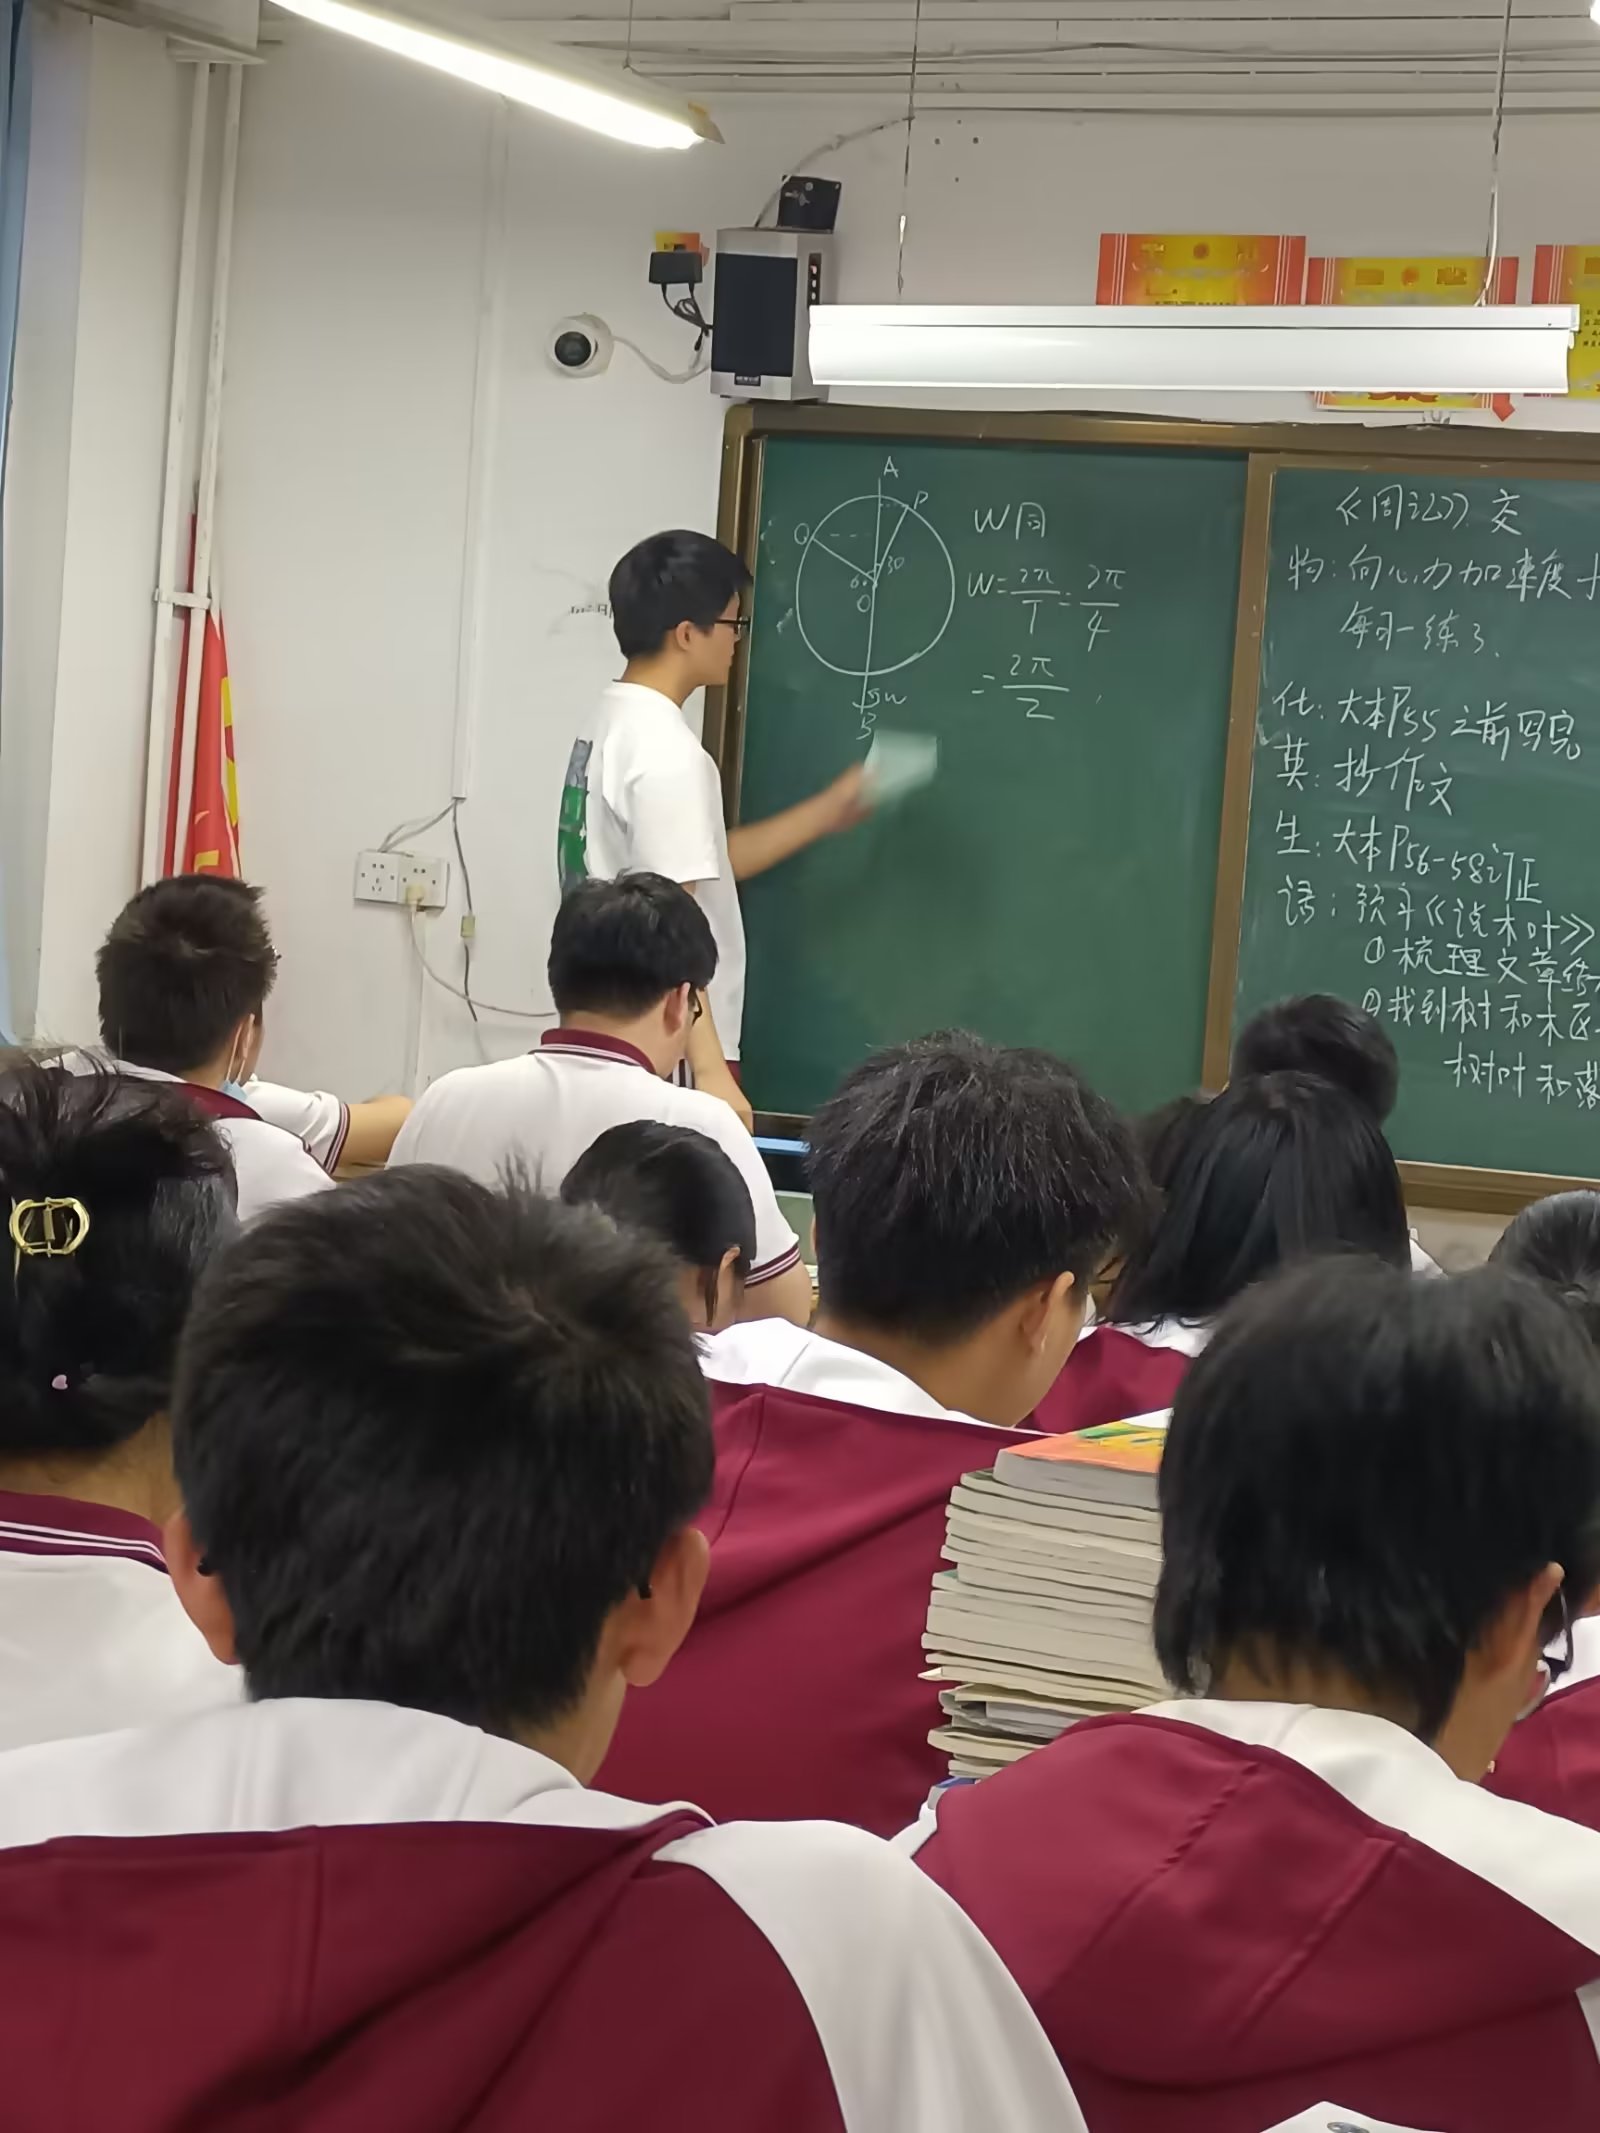 A
P
Q
30
60
O
ω
B
W同
W=2π/T=2π/4
=2π/2
《周记》交
物:向心力加速度
每日一练3.
化:大本P55之前写完
英:抄作文
生:大本P56-58订正
语:预习《说木叶》
①梳理文章结
②找到树和木区
树叶和落